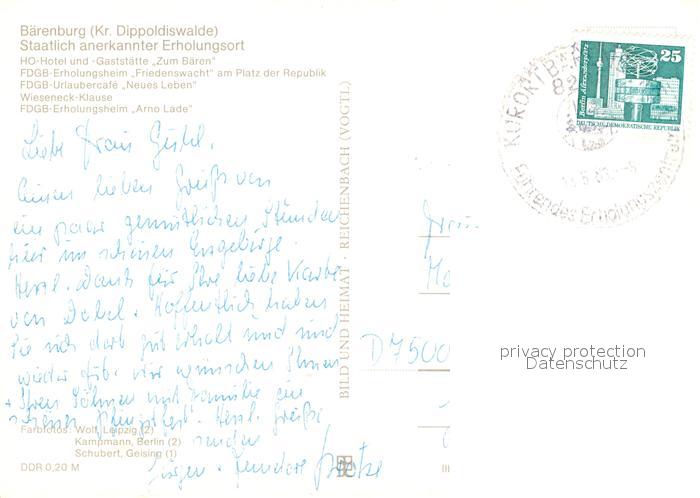 Bärenburg (Kr. Dippoldiswalde)
Staatlich anerkannter Erholungsort
HO-Hotel und -Gaststätte „Zum Bären"
FDGB-Erholungsheim „Friedenswacht" am Platz der Republik
FDGB-Urlaubercafé „Neues Leben"
Wieseneck-Klause
FDGB-Erholungsheim „Arno Lade"
Liebe Frau
einen lieben Gruß von
ein paar gemütlichen Stunden
hier im schönen Erzgebirge.
Herzl. Dank für Ihre liebe Karte
von Hoffentlich haben
Sie sich dort gut erholt und sind
wieder wir wünschen Ihnen
+ Ihren Söhnen mit Familie ein
schönes Pfingstfest. Herzl. Grüße
senden
Farbfotos: Wolf, Leipzig (2)
Kampmann, Berlin (2)
Schubert, Geising (1)
DDR 0,20 M
BILD UND HEIMAT · REICHENBACH (VOGTL)
D 7500
25
Berlin, Alexanderplatz
DEUTSCHE DEMOKRATISCHE REPUBLIK
KURORT
Führendes Erholungszentrum
privacy protection
Datenschutz